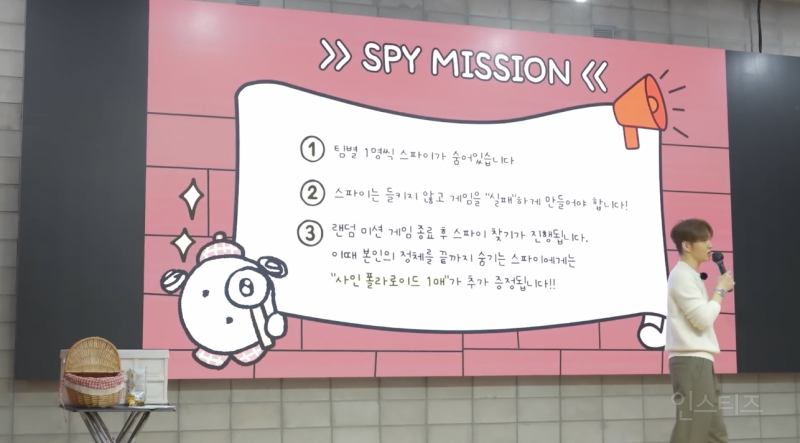 >> SPY MISSION <<
1 팀별 1명씩 스파이가 숨어있습니다
2 스파이는 들키지 않고 게임을 "실패"하게 만들어야 합니다!
3 랜덤 미션 게임 종료 후 스파이 찾기가 진행됩니다.
이때 본인의 정체를 끝까지 숨기는 스파이에게는
"사인 폴라로이드 1매"가 추가 증정됩니다!!
인스티즈